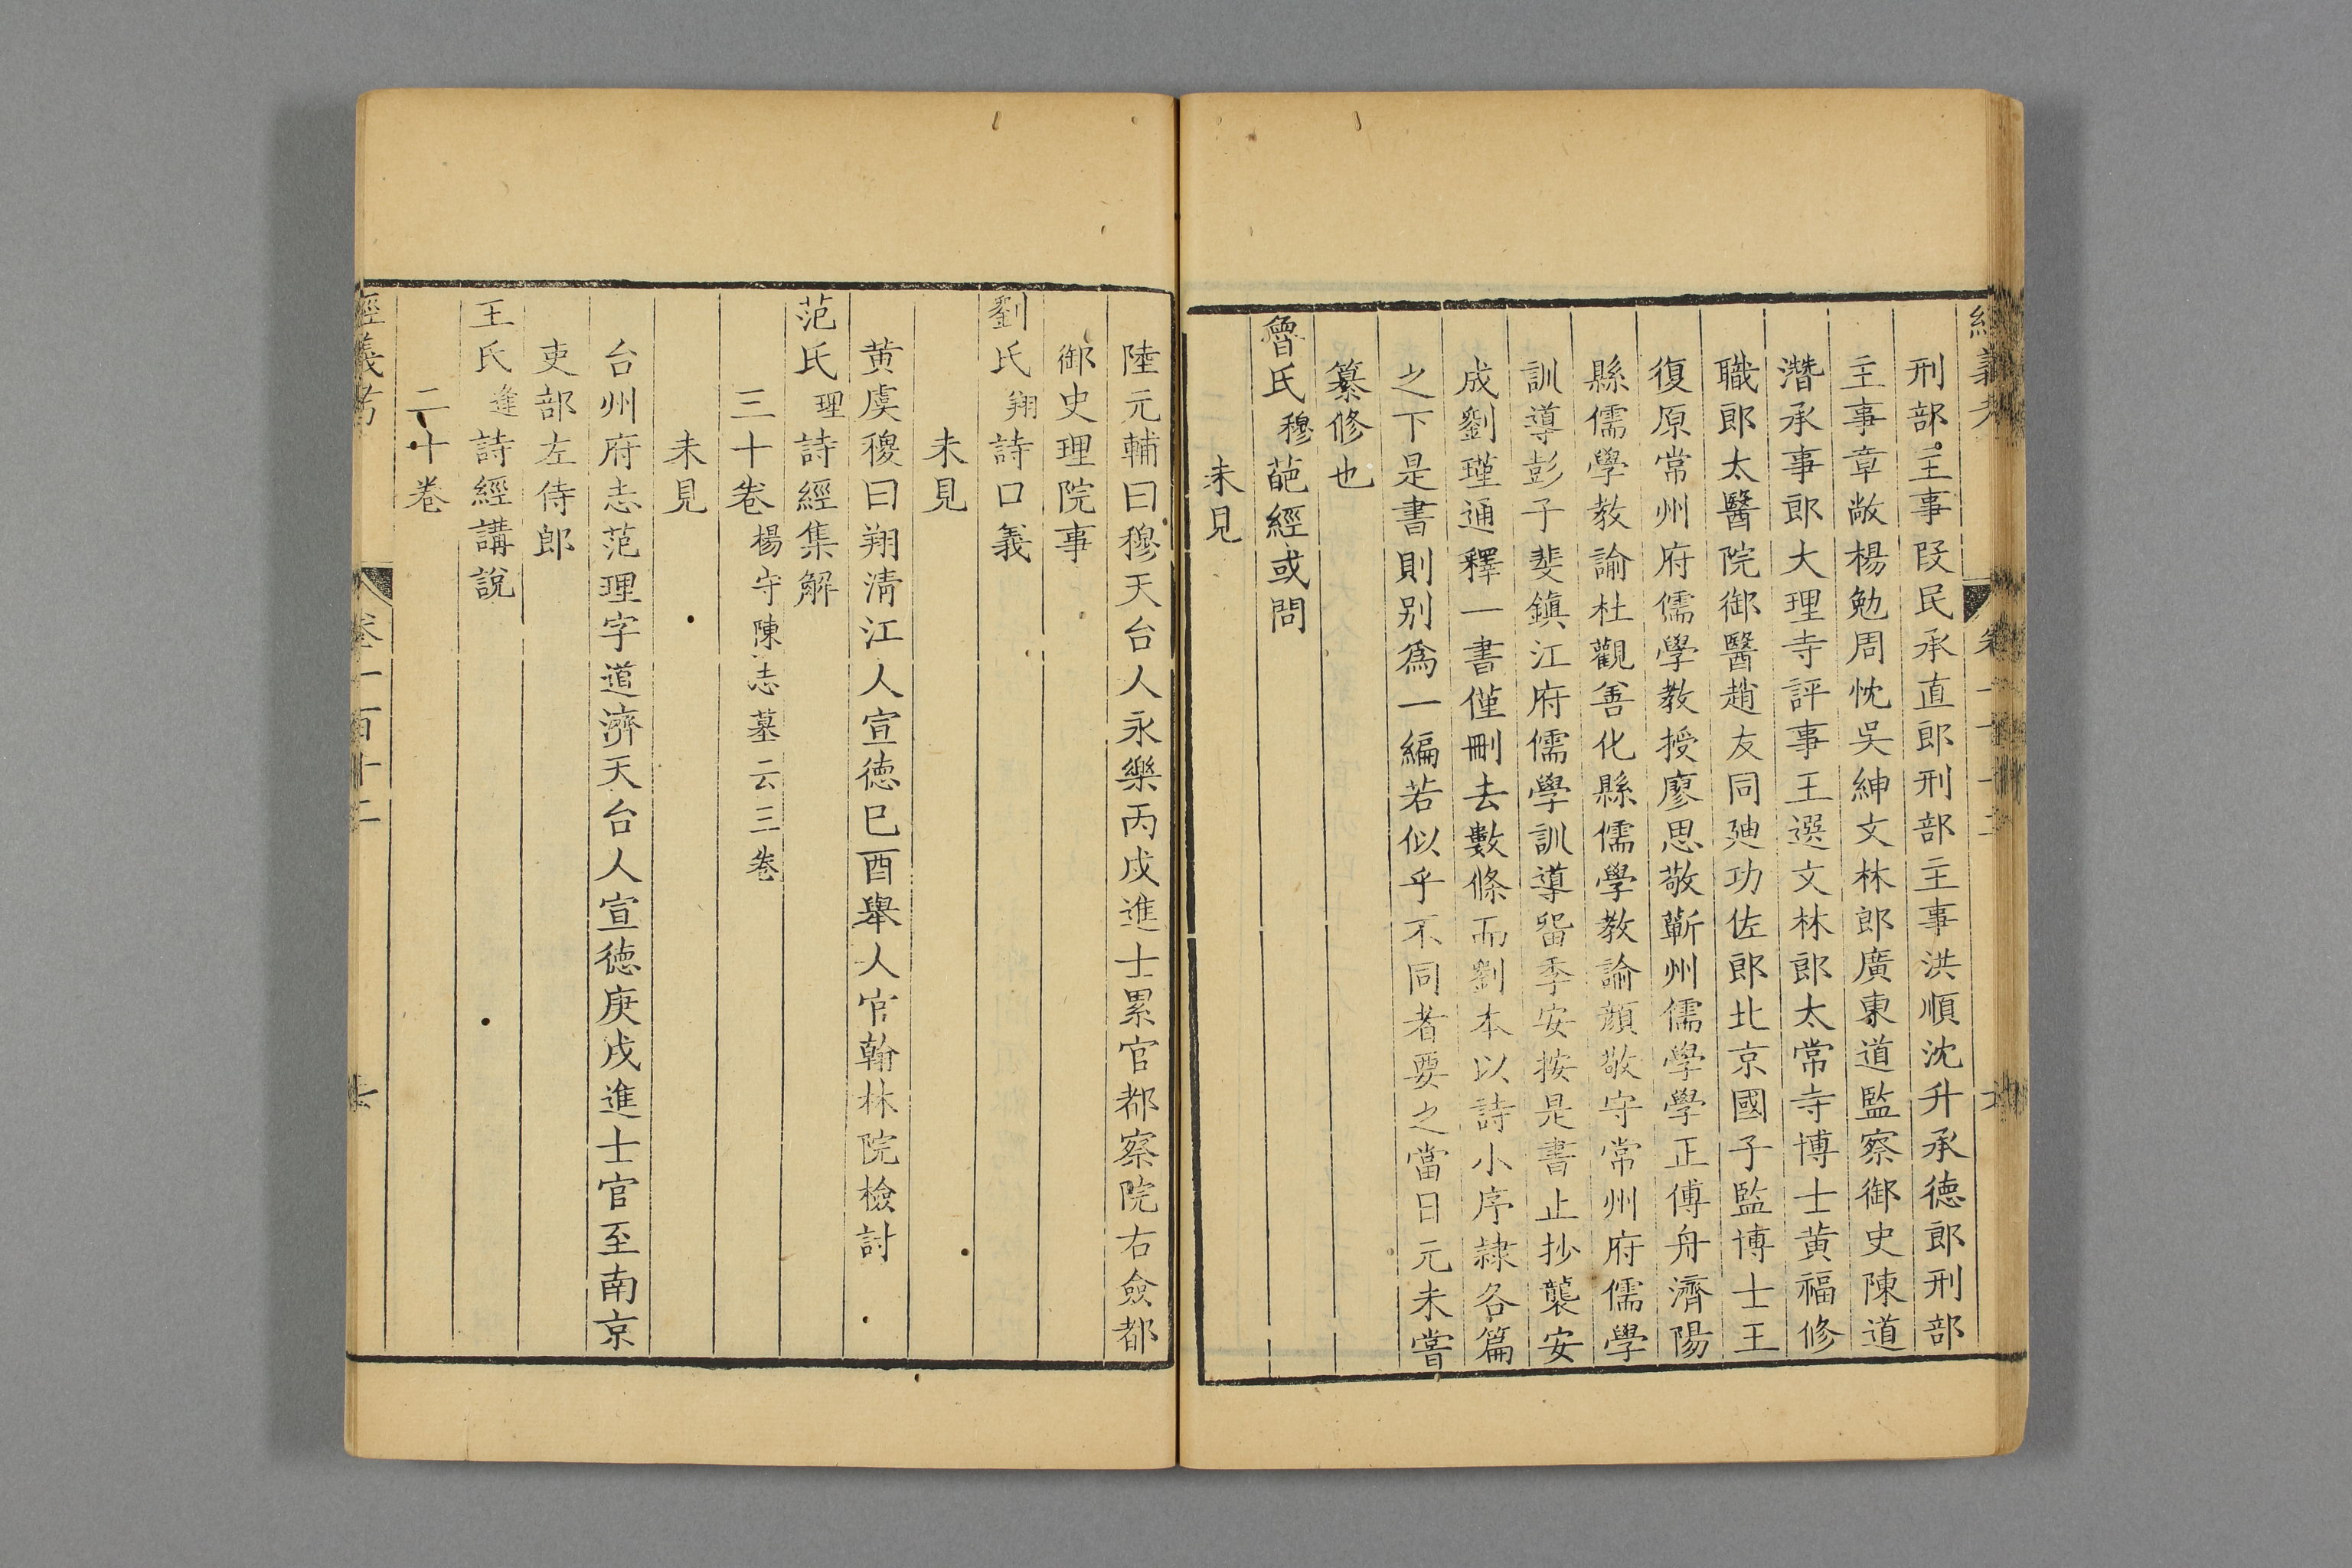 刑部主事段民承直郎刑部主事洪順沈升承德郎刑部
主事章敞楊勉周忱吳紳文林郎廣東道監察御史陳道
潛承事郎大理寺評事王選文林郎太常寺博士黃福修
職郎太醫院御醫趙友同廸功佐郎北京國子監博士王
復原常州府儒學教授廖思敬蘄州儒學學正傅舟濟陽
縣儒學教諭杜觀善化縣儒學教諭顔敬守常州府儒學
訓導彭子斐鎮江府儒學訓導畱季安按是書止抄襲安
成劉瑾通釋一書僅刪去數條而劉本以詩小序隸各篇
之下是書則别爲一編若似乎不同者要之當日元未嘗
纂修也
魯氏穆葩經或問
未見
陸元輔曰穆天台人永樂丙戍進士累官都察院右僉都
御史理院事
劉氏翔詩口義
未見
黄虞稷曰翔清江人宣德巳酉舉人官翰林院檢討
范氏理詩經集解
三十卷楊守陳志墓云三卷
未見
台州府志范理字道濟天台人宣德庚戍進士官至南京
吏部左侍郎
王氏逢詩經講說
二十卷
經義考 卷一百十二